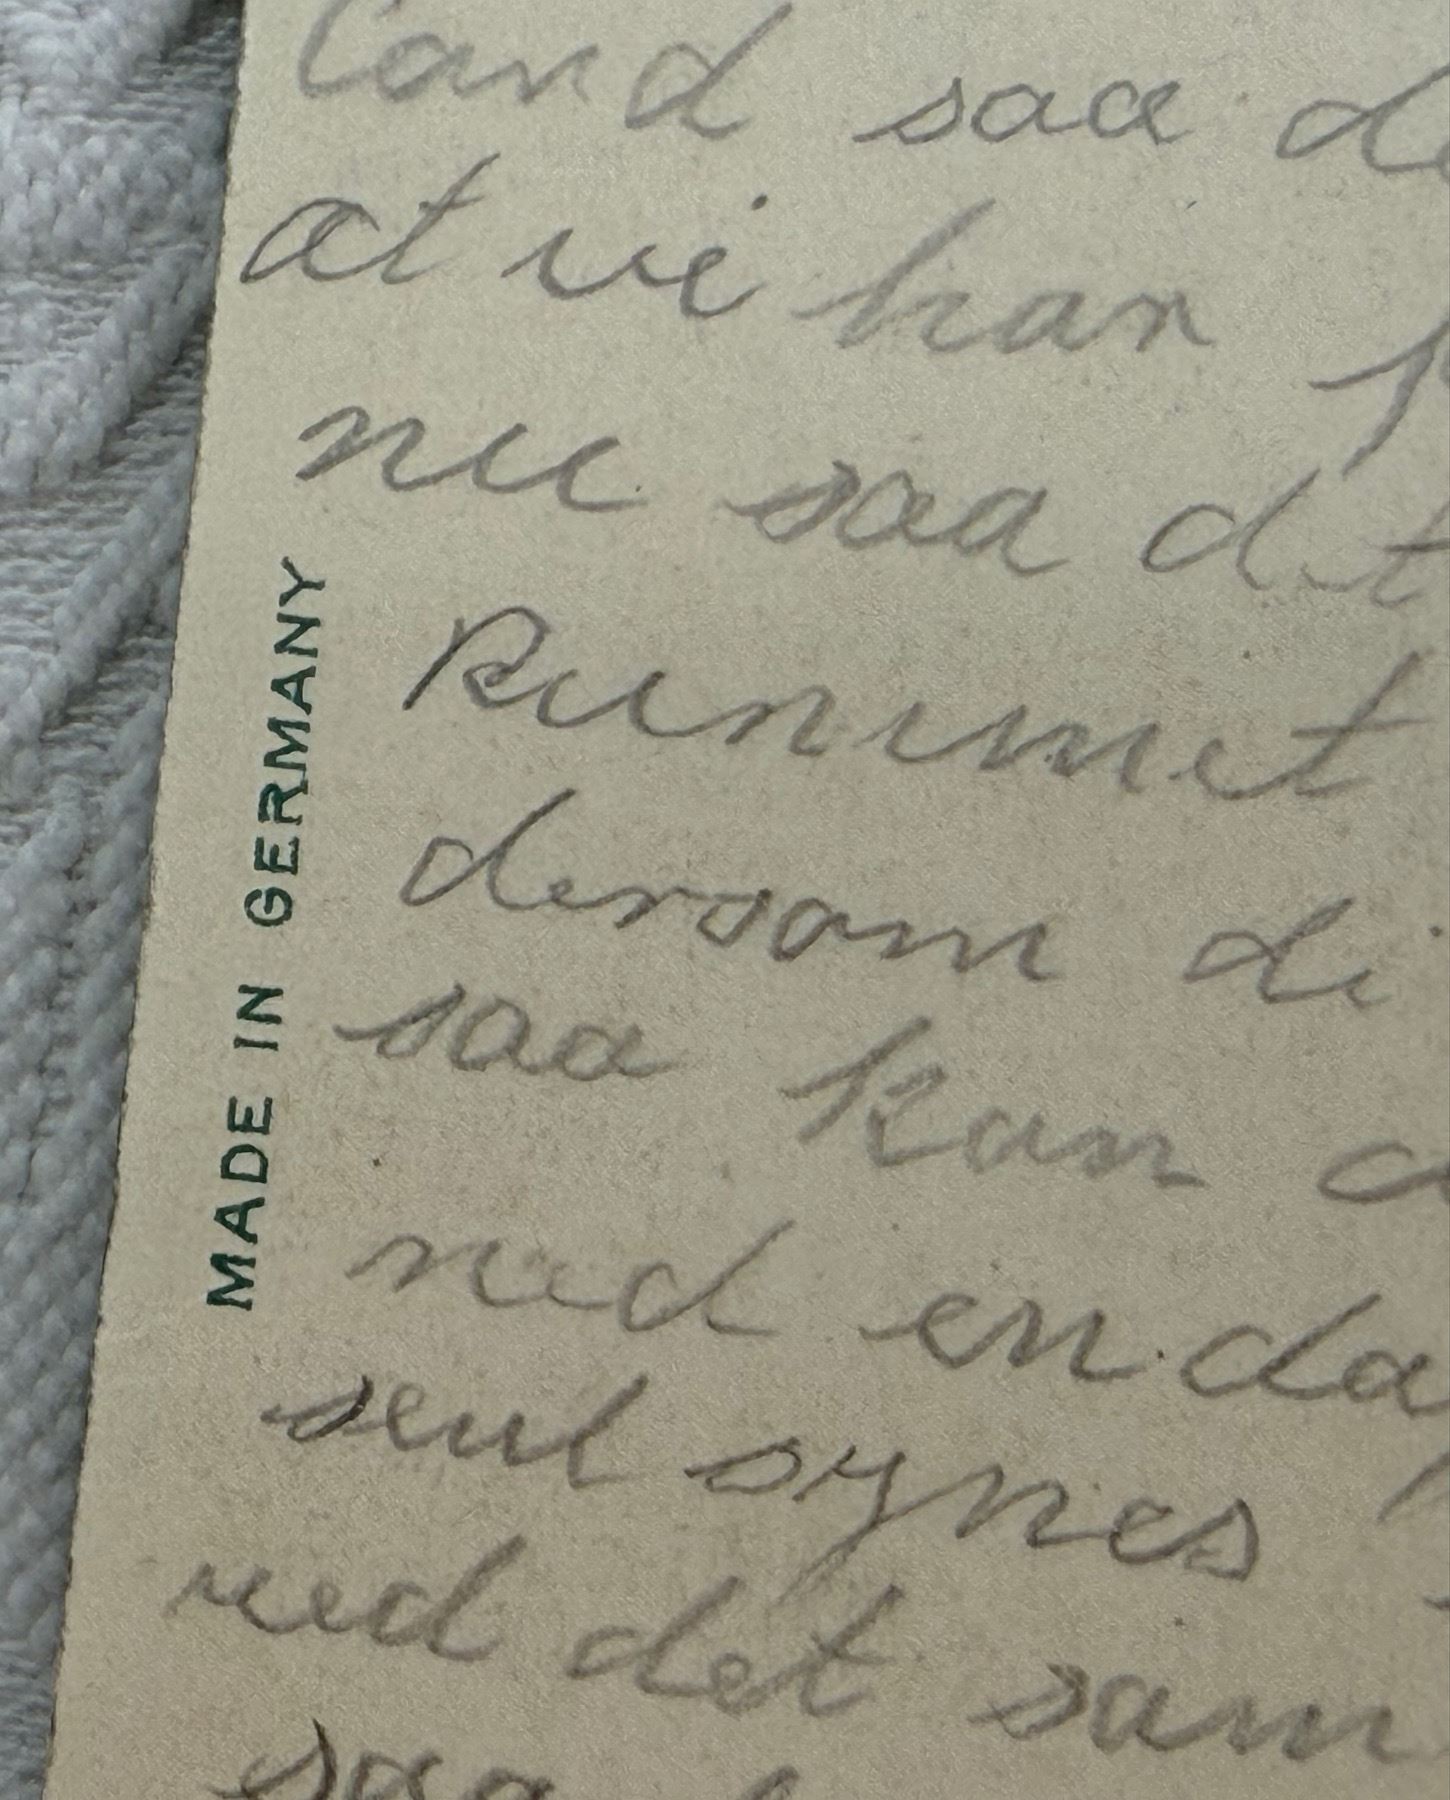 land saa de
at vi har f
nu saa dit
kunimet
dersom di
saa kan
ned en da
seul synes
ved det sam
saa
MADE IN GERMANY